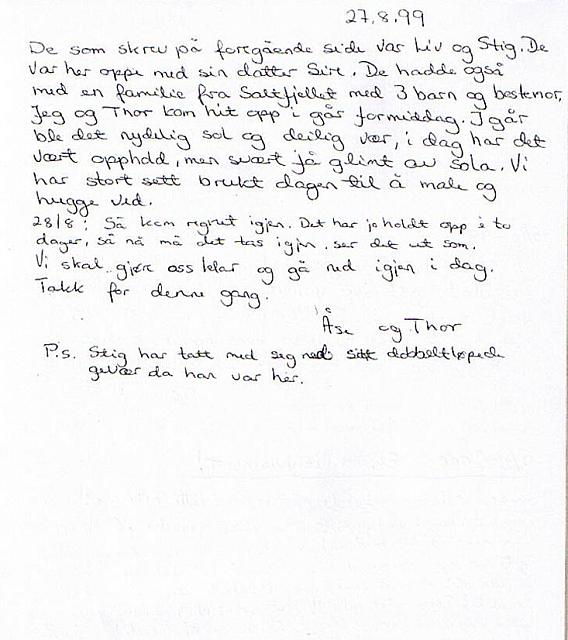 27.8.99
De som skrev på foregående side var Liv og Stig. De
var her oppe med sin datter Siri. De hadde også
med en familie fra Saltfjellet med 3 barn og bestemor.
Jeg og Thor kom hit opp i går formiddag. I går
ble det nydelig sol og deilig vær, i dag har det
vært opphold, men svært få glimt av sola. Vi
har stort sett brukt dagen til å male og
hugge ved.
28/8: Så kom regnet igjen. Det har jo holdt opp i to
dager, så nå må det tas igjen, ser det ut som.
Vi skal gjøre oss klar og gå ned igjen i dag.
Takk for denne gang.
Åse og Thor
P.s. Stig har tatt med seg ned sitt dobbeltløpede
gevær da han var her.